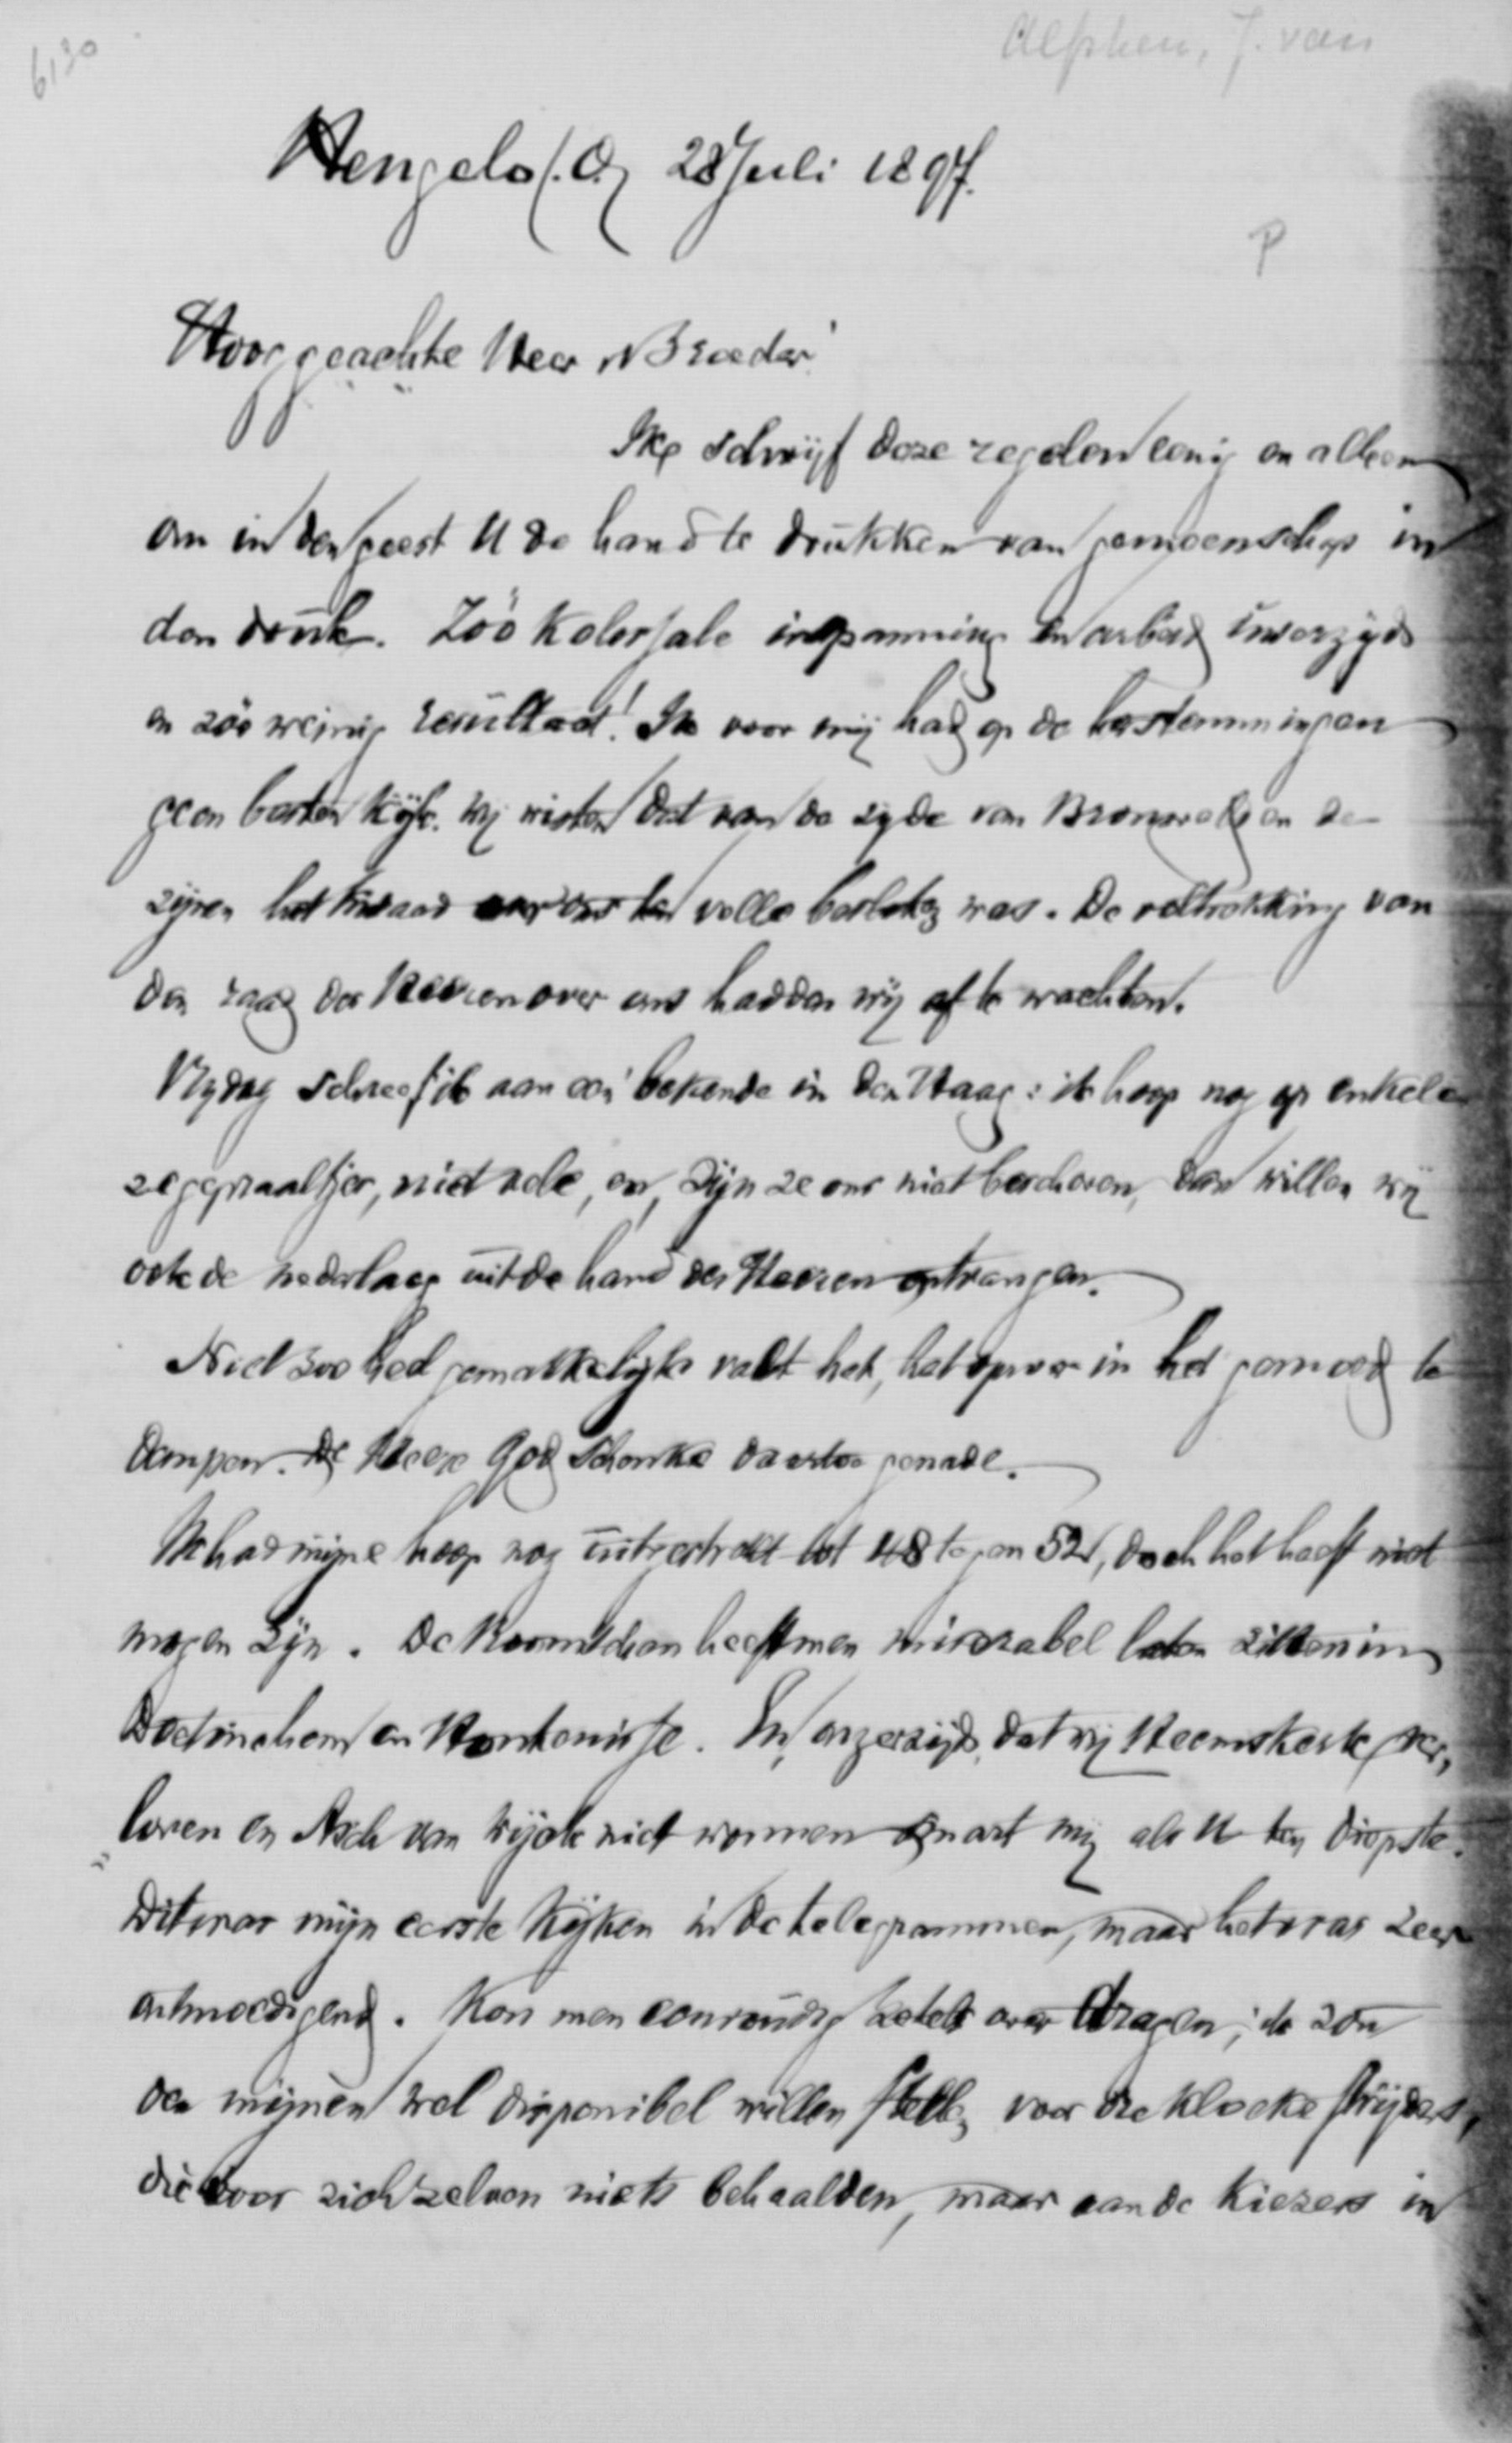 6130
Alphen, J. van
Hengelo (O.) 28 Juli 1897.
P
Hooggeachte Heer & Broeder!
Ik schrijf deze regelen eenig en alleen
om in den geest U de hand te drukken van gemeenschap in
den druk. Zóó kolossale inspanning en arbeid Uwerzijds
en zóó weinig resultaat! Ik voor mij had op de herstemmingen
geen besten kijk. Wij wisten dat van de zijde van Bronsveld en de
zijnen het kwaad over ons ten volle besloten was. De voltrekking van
den raad des Heeren over ons hadden wij af te wachten.
Vrijdag schreef ik aan een bekende in den Haag: ik hoop nog op enkele
zegepraaltjes, niet vele, en, zijn ze ons niet beschoren, dan willen wij
ook de nederlaag uit de hand des Heeren ontvangen.
Niet zoo heel gemakkelijk valt het, het oproer in het gemoed te
dempen. De Heere God schenke daartoe genade.
Ik had mijne hoop nog uitgestrekt tot 48 tegen 52, doch het heeft niet
mogen zijn. De Roomschen heeft men miserabel laten zitten in
Doetinchem en Hontenisse. En, onzerzijds, dat wij Heemskerk ver,
loren en Asch van Wijck niet wonnen smart mij als U ten diepste.
" Dit was mijn eerste kijken in de telegrammen, maar het was zeer
ontmoedigend. Kon men eenvoudig zetels over dragen, ik zou
den mijnen wel disponibel willen stellen voor die kloeke strijders,
die voor zich zelven niets behaalden, maar aan de kiezers in